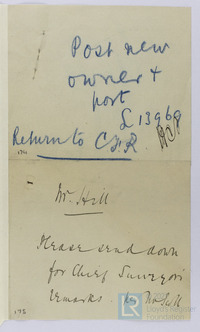 Post new
owner &
port
£ 13968
Return to C.S.R.
Mr. Hill
Please send down
for Chief Surveyors
remarks.
LR
Lloyd's Register
Foundation